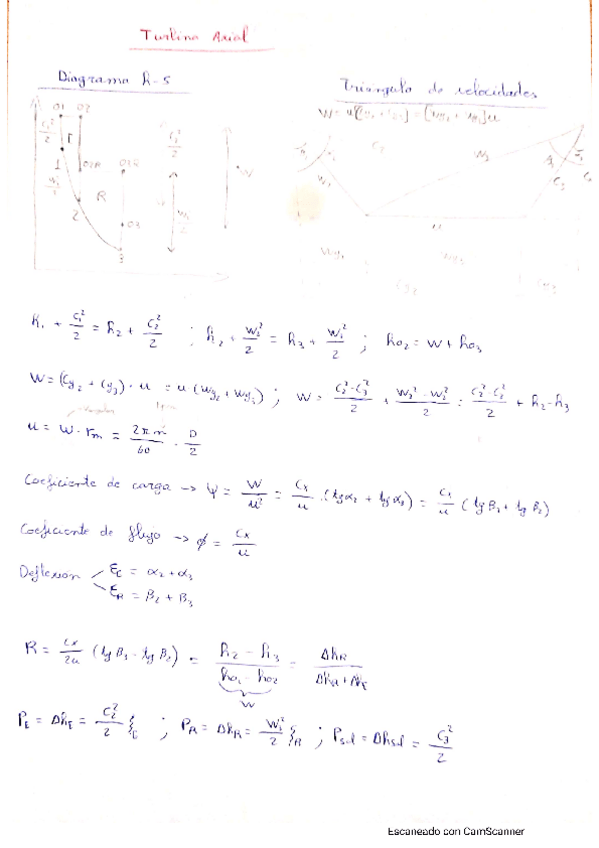 Turbina Axial
Diagrama h-s
Triángulo de velocidades
W = u[cy2 + cy3] = [wy2 + wy3]u
01 02
c₁²/2
E
1
02R 03R
R
2
03
3
W
w₂
c₂
u
h₁ + c₁²/2 = h₂ + c₂²/2 ; h₂ + w₂²/2 = h₃ + w₃²/2 ; h02 = W + h03
W = (cy2 + cy3) · u = u (wy2 + wy3) ; W = (c₂² - c₃²)/2 + (w₃² - w₂²)/2 = (c₂² - c₃²)/2 + h₂ - h₃
u = w · rm = 2πn/60 · D/2
Coeficiente de carga → ψ = W/u² = cx/u · (tg α₂ + tg α₃) = cx/u (tg β₃ + tg β₂)
Coeficiente de flujo → ϕ = cx/u
Deflexion εE = α₂ + α₃
εR = β₂ + β₃
R = cx/2u (tg β₃ - tg β₂) = (h₂ - h₃)/(h01 - h03) = ΔhR/(ΔhR + ΔhE)
W
PE = ΔhE = c₂²/2 ξE ; PR = ΔhR = w₃²/2 ξR ; Psal = Δhsal = c₃²/2
Escaneado con CamScanner